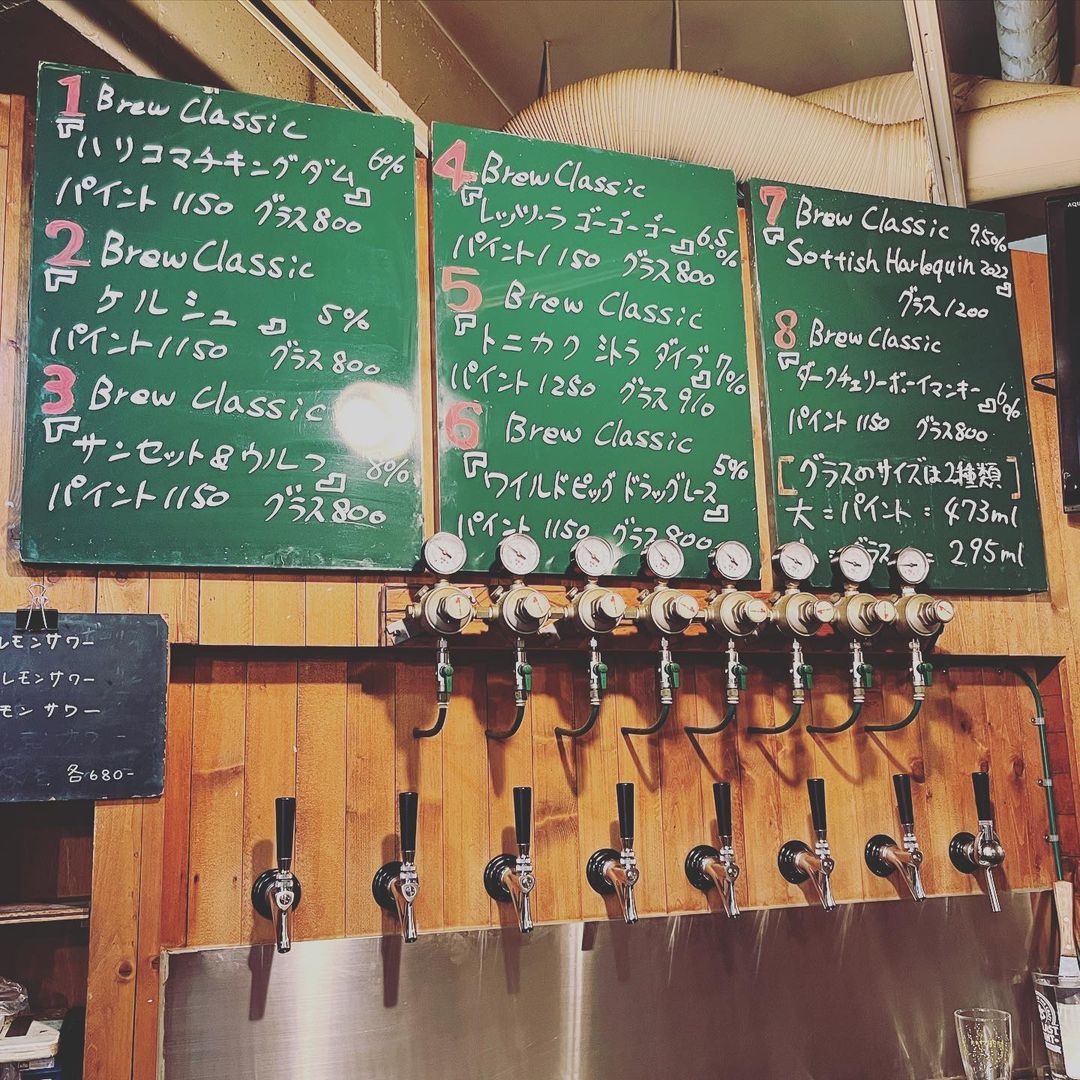 1 Brew Classic
『ハリコマチキングダム』 6%
パイント 1150 グラス 800
2 Brew Classic
『ケルシュ』 5%
パイント 1150 グラス 800
3 Brew Classic
『サンセット&ウルフ』 8%
パイント 1150 グラス 800
4 Brew Classic
『レッツ・ラ ゴーゴーゴー』 6.5%
パイント 1150 グラス 800
5 Brew Classic
『トニカク シトラ ダイブ』 7%
パイント 1250 グラス 9%
6 Brew Classic
『ワイルドピッグ ドラッグレース』 5%
パイント 1150 グラス 800
7 Brew Classic 9.50%
『Sottish Harloquin 2022』
グラス 1200
8 Brew Classic
『ダークチェリーボーイマンキー』 6%
パイント 1150 グラス 800
[グラスのサイズは2種類]
大=パイント=473ml
グラス= 295ml
レモンサワー
レモンサワー
モンサワー
各680-